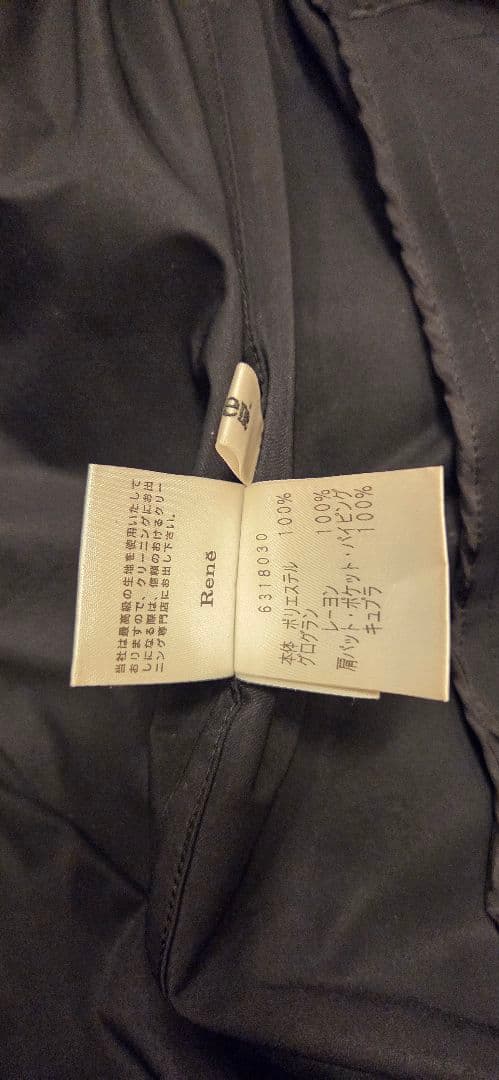 当社は最高級の生地を使用いたして
おりますので、クリーニングにお出
しになる際は、信頼のおけるクリー
ニング専門店にお出し下さい。
René
6318030
本体 ポリエステル 100%
グログラン
レーヨン 100%
肩パット・ポケット・パイピング
キュプラ 100%